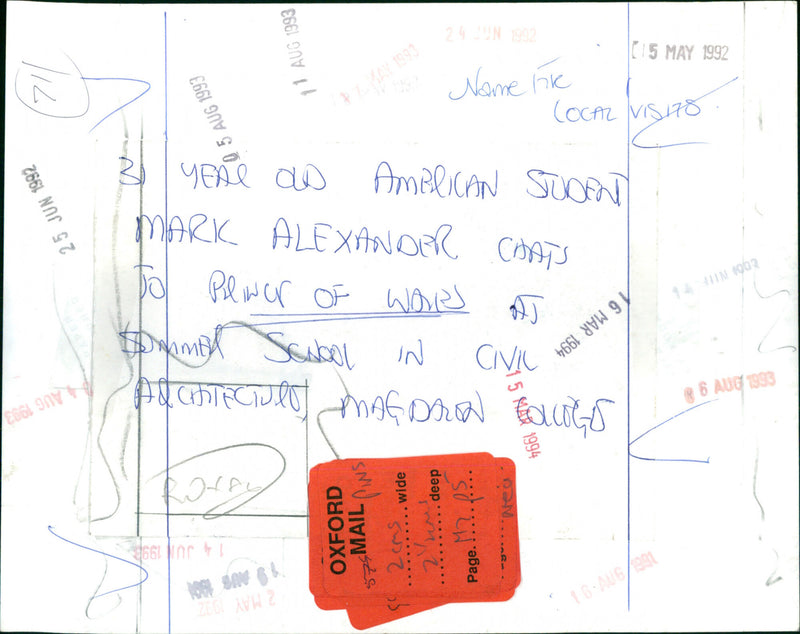 11 AUG 1993
24 JUN 1992
15 MAY 1992
71
05 AUG 1993
Name File
LOCAL VISITS
25 JUN 1992
31 YEAR OLD AMERICAN STUDENT
MARK ALEXANDER CHATS
TO PRINCE OF WALES AT
SUMMER SCHOOL IN CIVIL
ARCHITECTURE, MAGDALEN COLLEGE
14 JUN 1993
16 MAR 1994
15 MAR 1994
06 AUG 1993
04 AUG 1993
ROYAL
OXFORD
MAIL PINS
2 cms wide
2 1/2 cms deep
Page M7 P5
New
14 JUN 1993
19 AUG 1991
2 MAY 1992